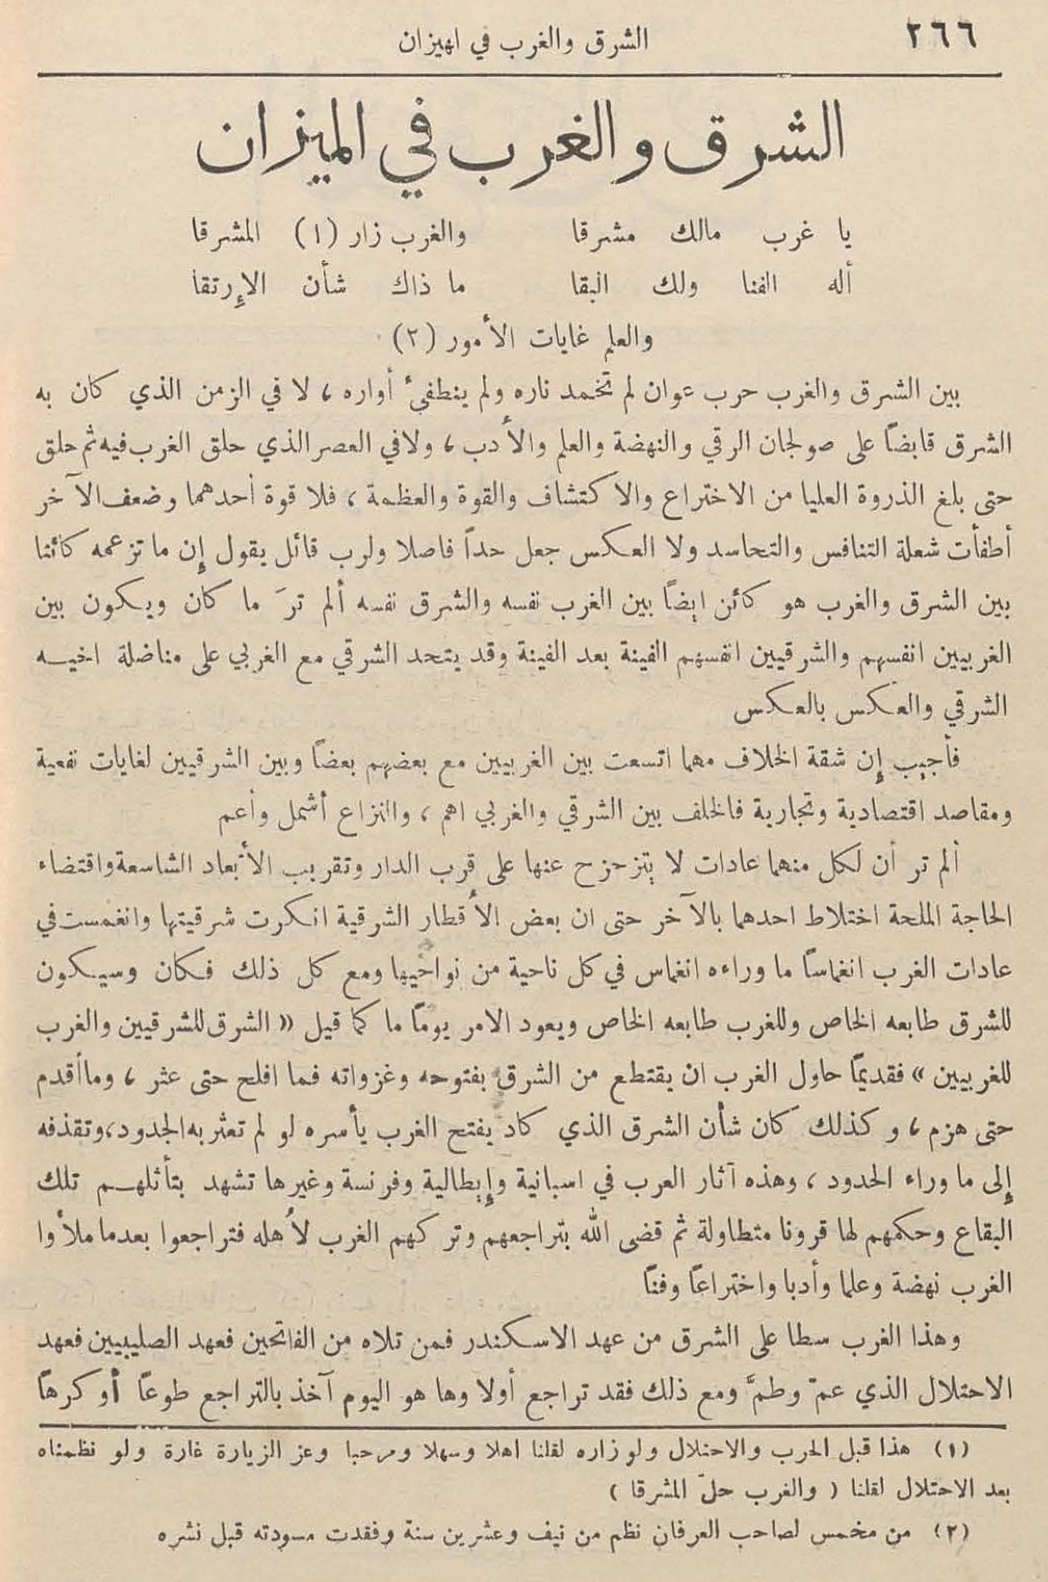 ٢٦٦
الشرق والغرب في اهيزان
الشرق والغرب في الميزان
يا غرب مالك مشرقا والغرب زار (١) المشرقا
أله الفنا ولك البقا ما ذاك شأن الإرتقا
والعلم غايات الأمور (٢)
بين الشرق والغرب حرب عوان لم تخمد ناره ولم ينطفئ أواره ، لا في الزمن الذي كان به
الشرق قابضاً على صولجان الرقي والنهضة والعلم والأدب ، ولافي العصر الذي حلق الغرب فيه ثم حلق
حتى بلغ الذروة العليا من الاختراع والاكتشاف والقوة والعظمة ، فلا قوة أحدهما وضعف الآخر
أطفأت شعلة التنافس والتحاسد ولا العكس جعل حداً فاصلا ولرب قائل يقول إن ما تزعمه كائنا
بين الشرق والغرب هو كائن ايضاً بين الغرب نفسه والشرق نفسه ألم ترَ ما كان ويكون بين
الغربيين انفسهم والشرقيين انفسهم الفينة بعد الفينة وقد يتحد الشرقي مع الغربي على مناضلة اخيه
الشرقي والعكس بالعكس
فأجيب إن شقة الخلاف مهما اتسعت بين الغربيين مع بعضهم بعضاً وبين الشرقيين لغايات نفعية
ومقاصد اقتصادية وتجارية فالخلف بين الشرقي والغربي اهم ، والنزاع أشمل وأعم
ألم تر أن لكل منهما عادات لا يتزحزح عنها على قرب الدار وتقريب الأبعاد الشاسعة واقتضاء
الحاجة الملحة اختلاط احدهما بالآخر حتى ان بعض الأقطار الشرقية انكرت شرقيتها وانغمست في
عادات الغرب انغماساً ما وراءه انغماس في كل ناحية من نواحيها ومع كل ذلك فكان وسيكون
للشرق طابعه الخاص وللغرب طابعه الخاص ويعود الامر يوماً ما كما قيل « الشرق للشرقيين والغرب
للغربيين » فقديماً حاول الغرب ان يقتطع من الشرق بفتوحه وغزواته فما افلح حتى عثر ، وماأقدم
حتى هزم ، وكذلك كان شأن الشرق الذي كاد يفتح الغرب بأسره لو لم تعثر به الجدود،وتقذفه
إلى ما وراء الحدود ، وهذه آثار العرب في اسبانية وإيطالية وفرنسة وغيرها تشهد بتأثلهم تلك
البقاع وحكمهم لها قرونا متطاولة ثم قضى الله بتراجعهم وتركهم الغرب لأهله فتراجعوا بعدما ملأوا
الغرب نهضة وعلما وأدبا واختراعاً وفناً
وهذا الغرب سطا على الشرق من عهد الاسكندر فمن تلاه من الفاتحين فعهد الصليبيين فعهد
الاحتلال الذي عمّ وطمَّ ومع ذلك فقد تراجع أولا وها هو اليوم آخذ بالتراجع طوعاً أو كرهاً
(١) هذا قبل الحرب والاحتلال ولو زاره لقلنا اهلا وسهلا ومرحبا وعز الزيارة غارة ولو نظمناه
بعد الاحتلال لقلنا ( والغرب حلّ المشرقا )
(٢) من مخمس لصاحب العرفان نظم من نيف وعشرين سنة وفقدت مسودته قبل نشره